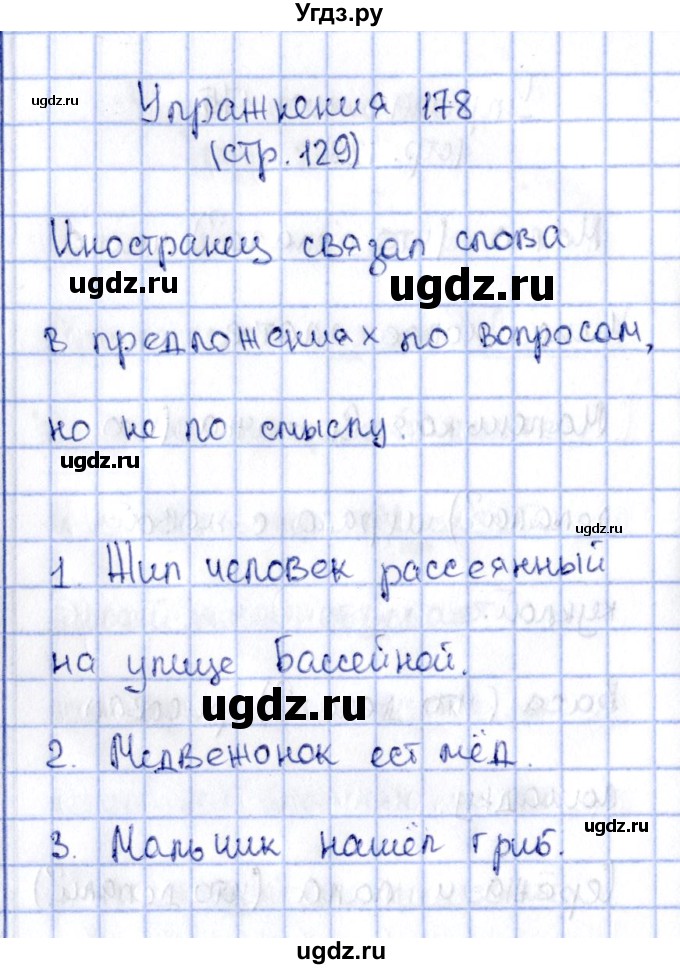 Угдз.ру
ugdz.ru
Упражнения 178
(стр. 129)
Иностранец связал слова
ugdz.ru ugdz.ru
в предложениях по вопросам,
но не по смыслу.
ugdz.ru
ugdz.ru
1. Жил человек рассеянный
на улице Бассейной.
ugdz.ru
2. Медвежонок ест мёд.
ugdz.ru
3. Мальчик нашёл гриб.
ugdz.ru